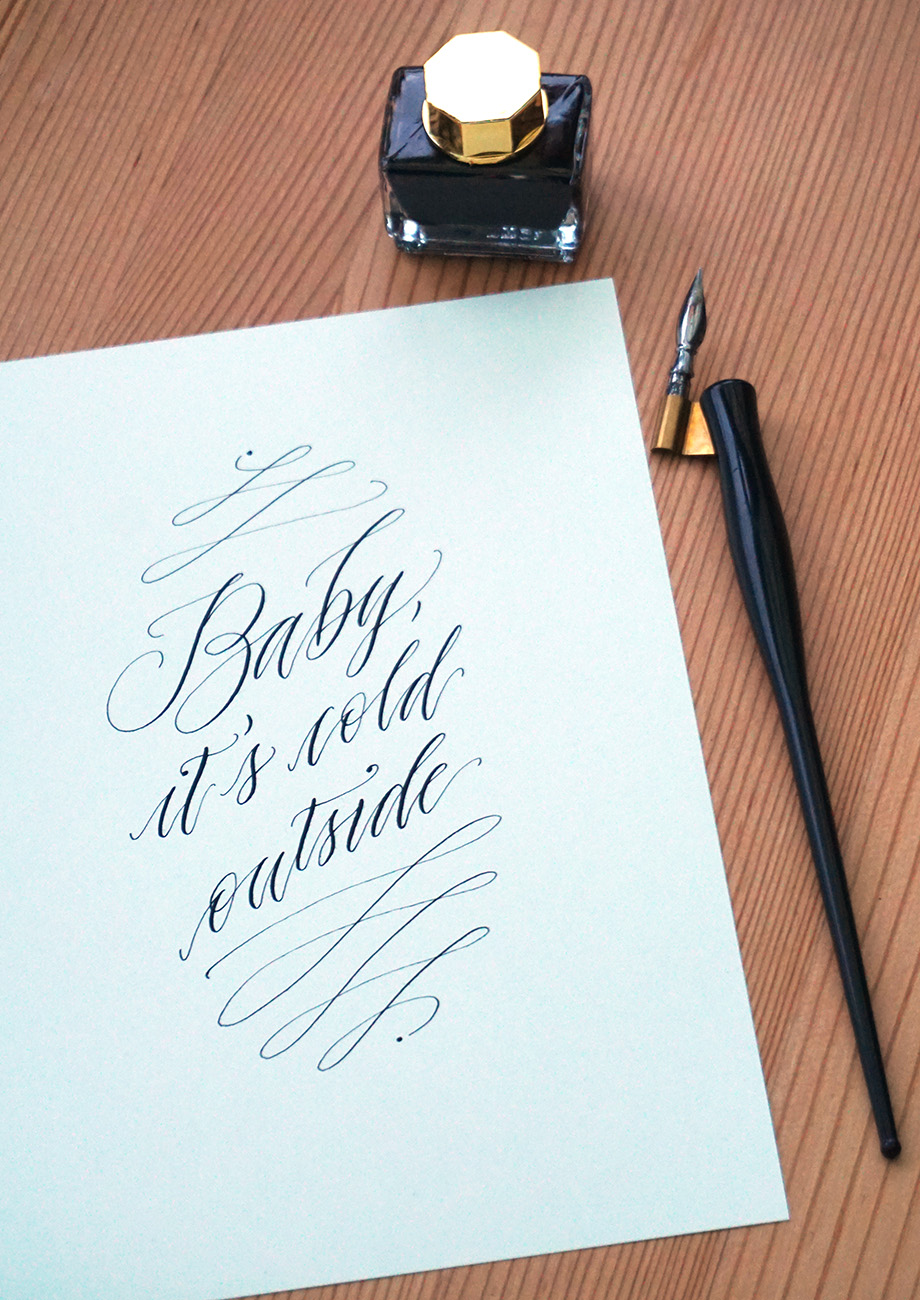 Baby,
it's cold
outside